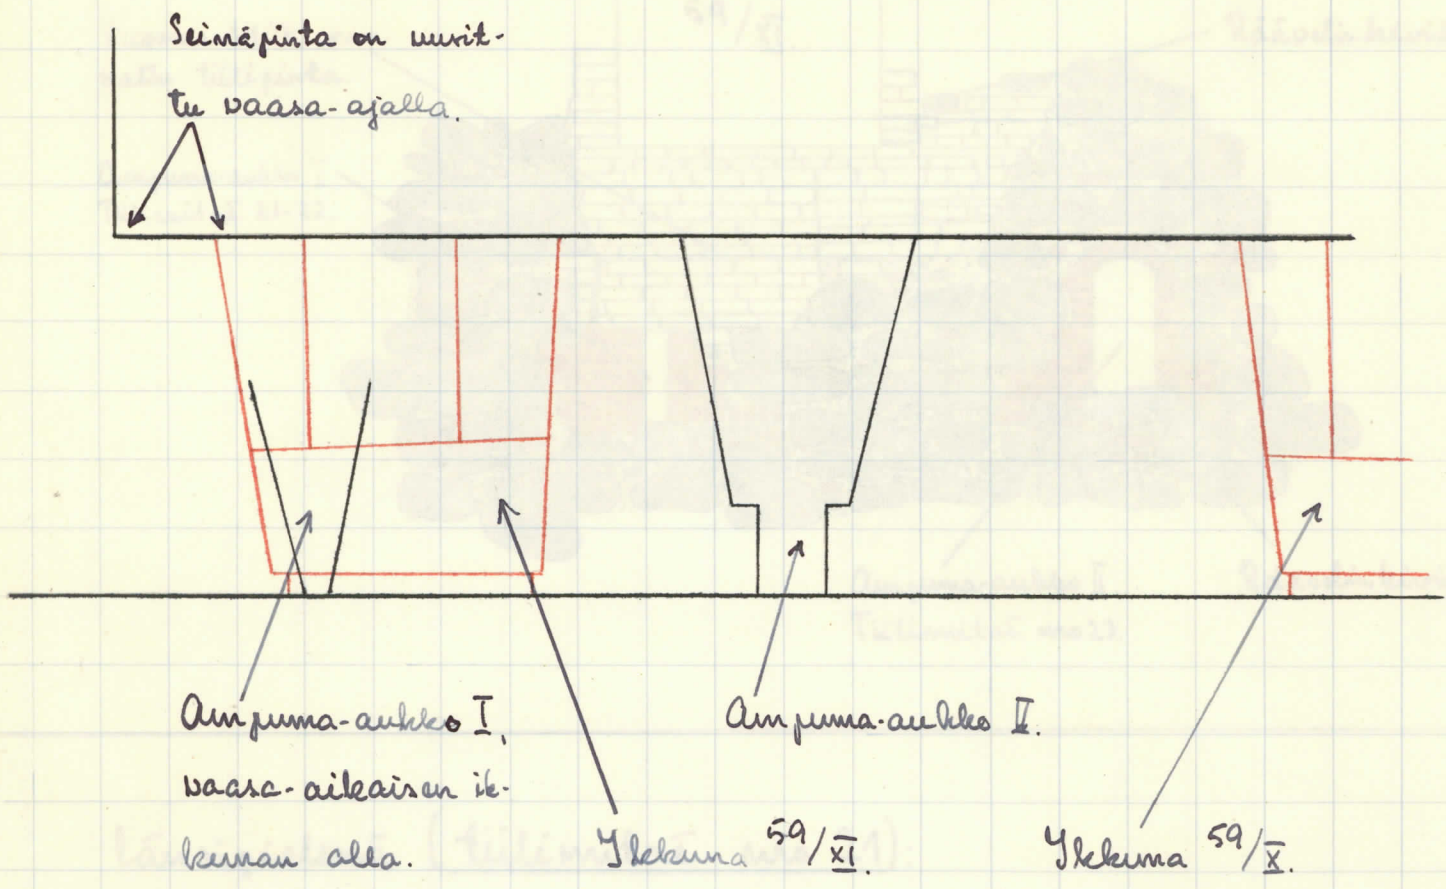 Seinäpinta on uusit-
tu vaasa-ajalla.
Ampuma-aukko I,
vaasa-aikaisen ik-
kunan alla.
Ikkuna 59/XI.
Ampuma-aukko II.
Ikkuna 59/X.